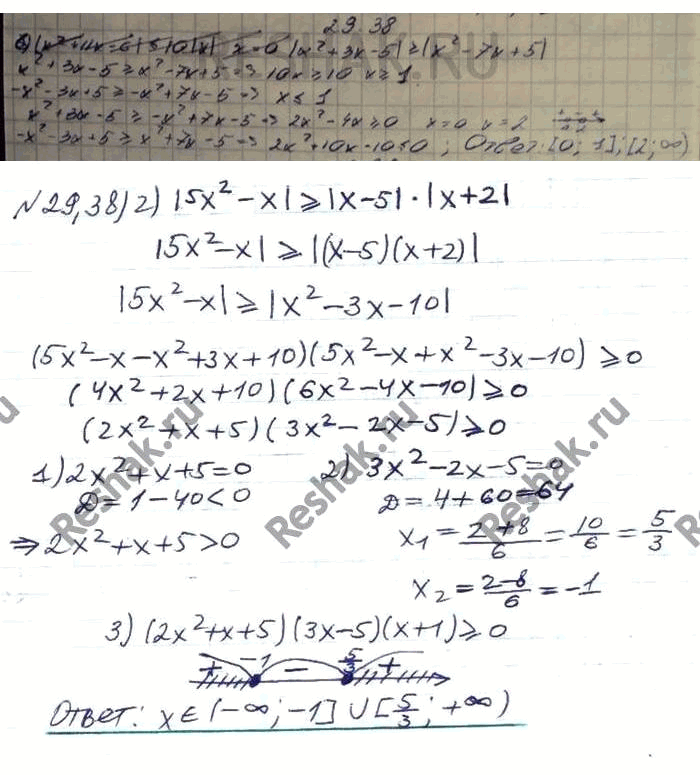 29.38
|x²+3x-5| ≥ |x²-7x+5|
x²+3x-5 ≥ x²-7x+5 ⇒ 10x ≥ 10 x ≥ 1
-x²-3x+5 ≥ -x²+7x-5 ⇒ x ≤ 1
x²+3x-5 ≥ -x²+7x-5 ⇒ 2x²-4x ≥ 0 x=0 x=2
-x²-3x+5 ≥ x²+7x-5 ⇒ 2x²+10x-10 ≤ 0 ; Ответ: [0; 1]; [2; ∞)
№29,38) г) |5x²-x| ≥ |x-5|·|x+2|
|5x²-x| ≥ |(x-5)(x+2)|
|5x²-x| ≥ |x²-3x-10|
(5x²-x-x²+3x+10)(5x²-x+x²-3x-10) ≥ 0
(4x²+2x+10)(6x²-4x-10) ≥ 0
(2x²+x+5)(3x²-2x-5) ≥ 0
1) 2x²+x+5=0 2) 3x²-2x-5=0
D=1-40<0 D=4+60=64
⇒ 2x²+x+5>0 x₁=(2+8)/6=10/6=5/3
x₂=(2-8)/6=-1
3) (2x²+x+5)(3x-5)(x+1) ≥ 0
+ -1 - 5/3 +
Ответ: x∈(-∞;-1]∪[5/3;+∞)
Reshak.ru
Reshak.ru
Reshak.ru